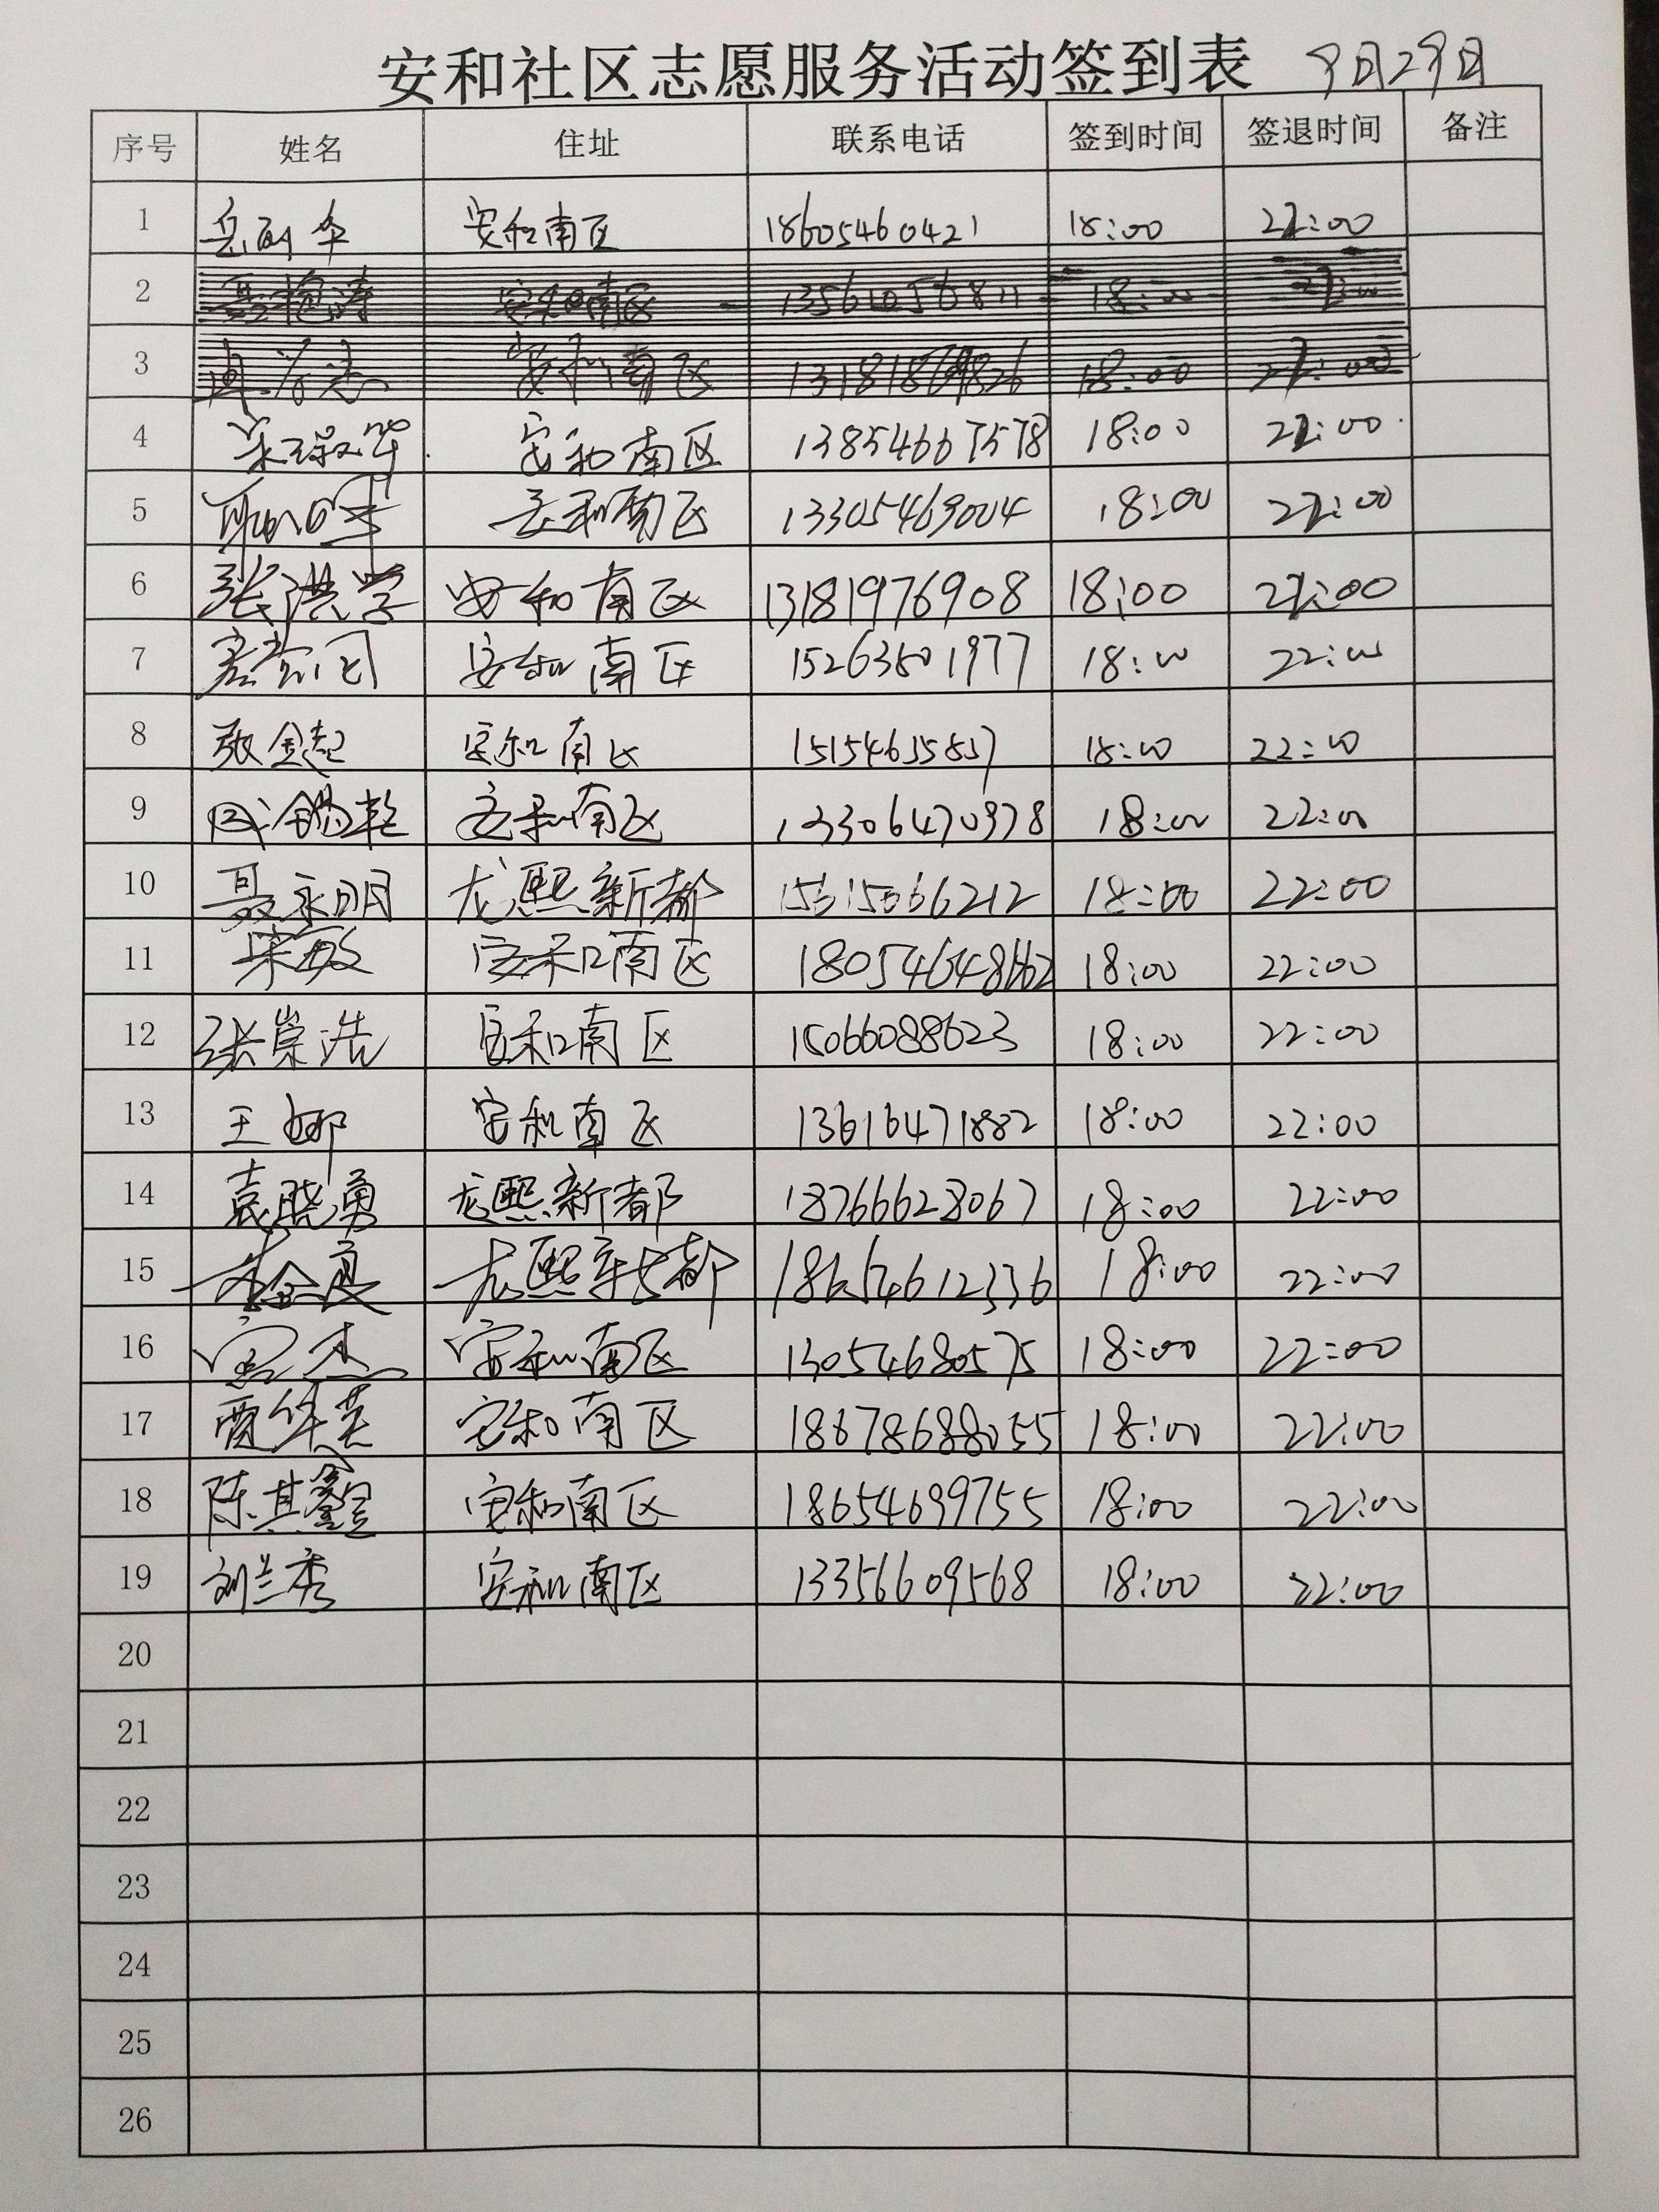 安和社区志愿服务活动签到表 9月29日
序号 姓名 住址 联系电话 签到时间 签退时间 备注
1 安和南区 18605460421 18:00 22:00
2 安和南区 18:00
3 安和南区 18:00
4 安和南区 13854667578 18:00 22:00
5 安和南区 13305469004 18:00 22:00
6 张洪学 安和南区 13181976908 18:00 22:00
7 安和南区 15263801977 18:00 22:00
8 张金起 安和南区 18:00 22:00
9 安和南区 13306470978 18:00 22:00
10 聂永明 龙熙新都 18:00 22:00
11 宋敏 安和南区 18:00 22:00
12 张崇浩 安和南区 15066088623 18:00 22:00
13 王娜 安和南区 13616471882 18:00 22:00
14 袁晓勇 龙熙新都 18766628067 18:00 22:00
15 龙熙新都 18654612336 18:00 22:00
16 安和南区 13054680575 18:00 22:00
17 贾华美 安和南区 18678688055 18:00 22:00
18 陈其鑫 安和南区 18654699755 18:00 22:00
19 刘兰秀 安和南区 13356609568 18:00 22:00
20
21
22
23
24
25
26